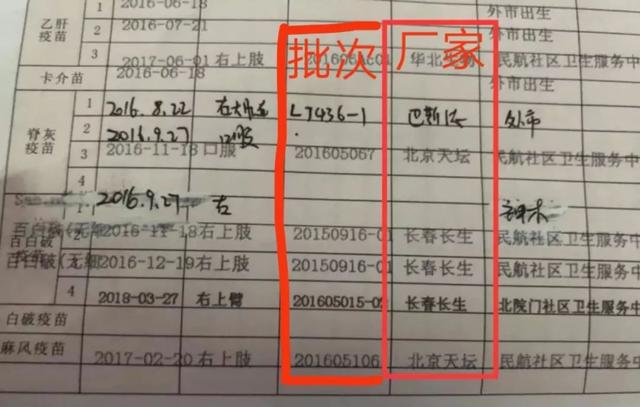 批次 厂家
乙肝疫苗
2016-06-18 外市出生
2 2016-07-21 外市出生
3 2017-06-01 右上肢 华北 民航社区卫生服务中
卡介苗 2016-06-18 外市出生
脊灰疫苗
1 2016.8.22 L7436-1 巴斯德 外市
2 2016.9.27 口服
3 2016-11-18 口服 201605067 北京天坛 民航社区卫生服务中
4
1 2016.9.27 右
百白破(无细 2 2016-11-18 右上肢 20150916-01 长春长生 民航社区卫生服务中
百白破(无细 2016-12-19 右上肢 20150916-01 长春长生 民航社区卫生服务中
4 2018-03-27 右上臂 201605015-02 长春长生 北院门社区卫生服务
白破疫苗
麻风疫苗 2017-02-20 右上肢 201605106 北京天坛 民航社区卫生服务中